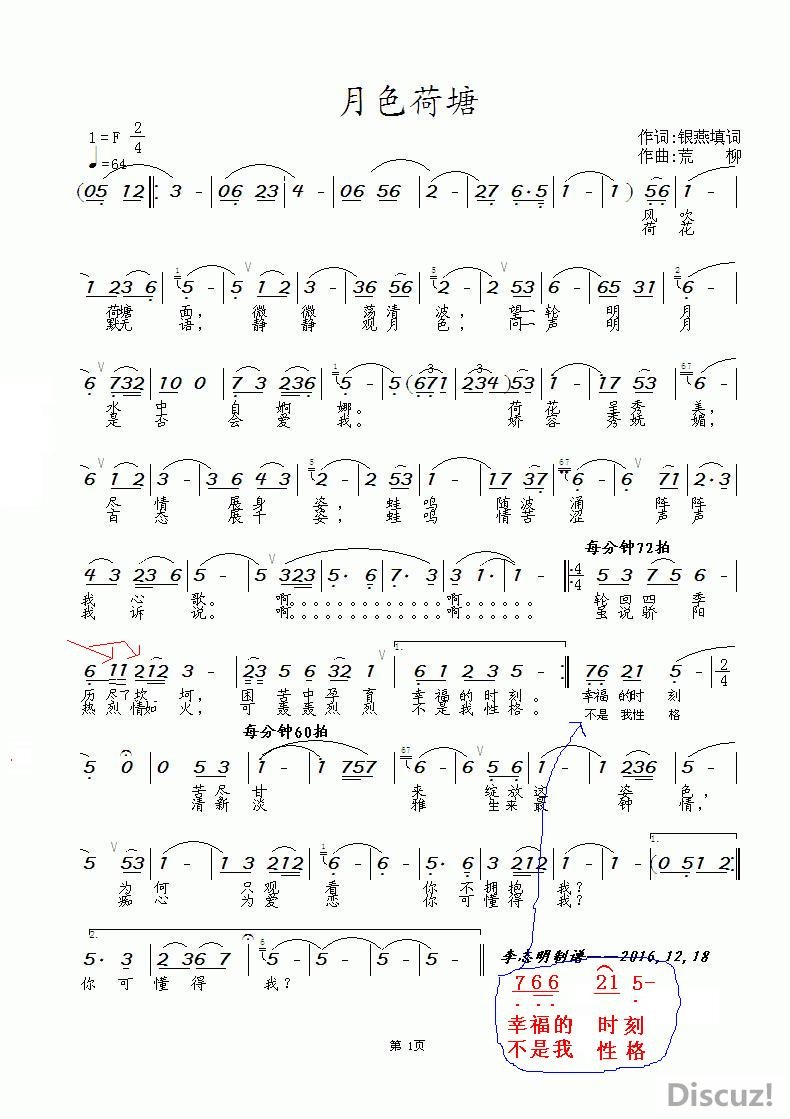 月色荷塘
1=F 2/4
♩=64
作词:银燕填词
作曲:荒 柳
(05 12 3 - 06 23 4 - 06 56 2 - 27 6·5 1 - 1 ) 56 1 -
风 吹
荷 花
1 23 6 5 - 5 1 2 3 - 36 56 2 - 2 53 1 - 65 31 6 -
荷塘 面， 微 微 荡 清 波， 望一 轮 明 月
默无 语， 静 静 观 月 色； 问一 声 明 月
6 732 10 0 7 3 236 5 - 5 (671 234)53 1 - 17 53 6 -
水 中 自 婀 娜。 荷 花 呈 秀 美，
是 否 会 爱 我。 娇 容 秀 妩 媚，
6 1 2 3 - 3 6 4 3 2 - 2 53 1 - 17 37 6 - 6 71 2·3
尽 情 展 身 姿， 蛙 鸣 随 波 涌 阵 阵
百 态 展 千 姿； 蛙 鸣 情 苦 涩 声 声
每分钟72拍
4 3 23 6 5 - 5 323 5· 6 7· 3 1 - 1 - 4/4 5 3 7 5 6
我 心 歌。 啊。。。。。。。。。。啊。。。。 轮 回 四 季
我 诉 说。 啊。。。。。。。。。。啊。。。。 虽 说 骄 阳
1.
6 11 212 3 - 23 5 6 32 1 6 1 2 3 5 - 76 21 5 - 2/4
历 尽了 坎 坷， 困 苦 中 孕 育 幸 福 的 时 刻。 幸福 的时 刻
热 烈 情如 火， 可 轰 轰 烈 烈 不 是 我 性 格。 不是 我性 格
每分钟60拍
5 0 0 5 3 1 - 1 757 6 - 6 5 6 1 - 1 236 5 -
苦 尽 甘 来 绽 放 这 姿 色，
清 新 淡 雅 生 来 最 钟 情，
1.
5 53 1 - 1 3 212 6 - 6 - 5· 6 3 212 1 - 1 - (0 51 2
为 何 只 观 看 你 不 拥 抱 我？
痴 心 为 爱 恋 你 可 懂 得 我？
2.
5· 3 2 36 7 5 - 5 - 5 - 5 -
你 可 懂 得 我？
李志明制谱——2016,12,18
766 21 5-
幸福的 时刻
不是我 性格
第 1页
Discuz!